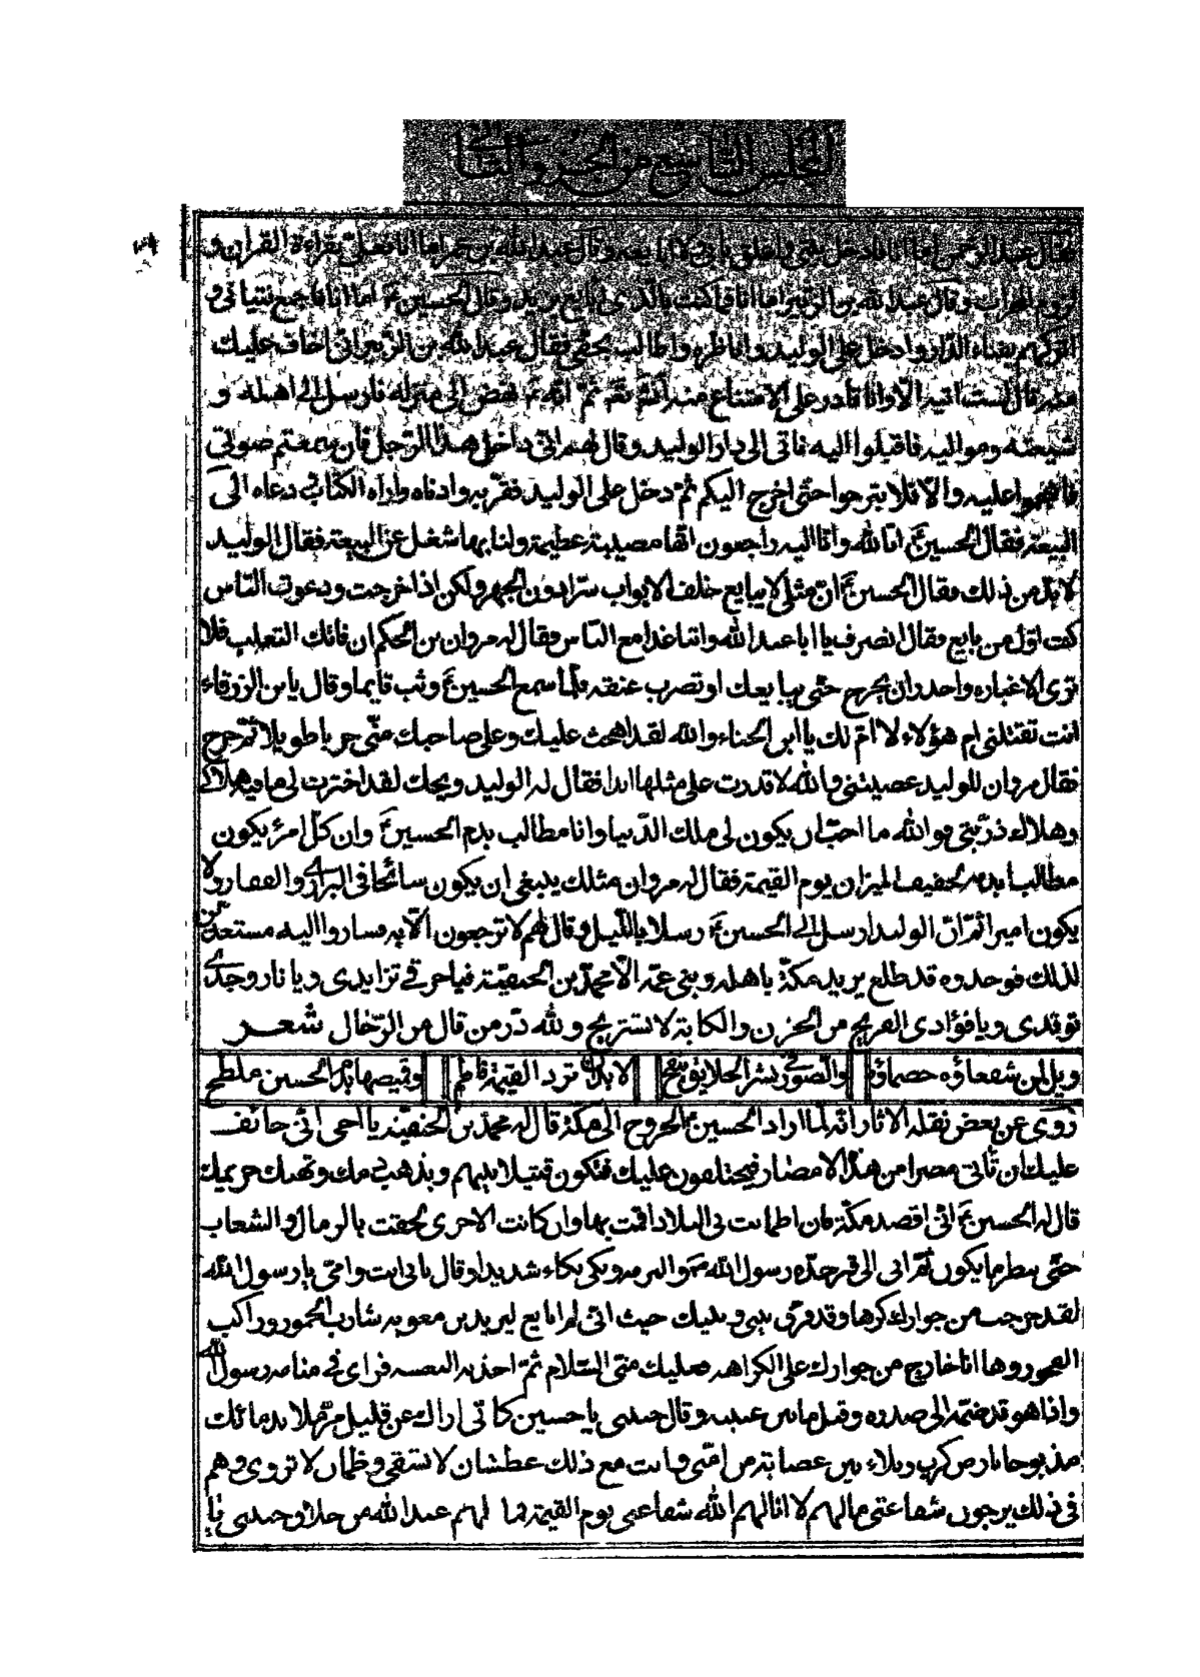 المجلس التاسع من الجزء الثاني
فقال عبد الرحمن اما انا فادخل بيتي واغلق بابي ولا ابايعه وقال عبد الله بن عمر اما انا فعلي بقراءة القران و
لزوم المحراب وقال عبد الله بن الزبير اما انا فما كنت بالذي ابايع يزيد وقال الحسين ع اما انا فاجمع فتياني و
اتركهم بفناء الدار وادخل على الوليد واناظره واطالب بحقي فقال عبد الله بن الزبير اني اخاف عليك
منه قال لست اتيه الا وانا قادر على الامتناع منه انشاء الله تع ثم انه نهض الى منزله فارسل الى اهله و
شيعته ومواليه فاقبلوا اليه فاتى الى دار الوليد وقال لهم اني داخل هذا الرجل فان سمعتم صوتي
فاهجموا عليه والا فلا تبرحوا حتى اخرج اليكم ثم دخل على الوليد فقربه وادناه واراه الكتاب ثم دعاه الى
البيعة فقال الحسين ع انا لله وانا اليه راجعون انها مصيبة عظيمة ولنا بها شغل عن البيعة فقال الوليد
لا بد من ذلك فقال الحسين ع ان مثلي لا يبايع خلف الابواب سرا دون الجهر ولكن اذا خرجت ودعوت الناس
كنت اول من بايع فقال انصرف يا ابا عبد الله واتنا غدا مع الناس فقال له مروان بن الحكم ان فاتك الثعلب فلا
ترى الا غباره واحذر ان يخرج حتى يبايعك او تضرب عنقه فلما سمع الحسين ع وثب قايما وقال يا بن الزرقاء
انت تقتلني ام هؤلاء لا ام لك يا ابن الخناء والله لقد اهجت عليك وعلى صاحبك مني حربا طويلا ثم خرج
فقال مروان للوليد عصيتني والله لا قدرت على مثلها ابدا فقال له الوليد ويحك لقد اخترت لي ما فيه هلاكي
وهلاك ذريتي فوالله ما احب ان يكون لي ملك الدنيا وانا مطالب بدم الحسين ع وان كل امرئ يكون
مطالبا بدمه لخفيف الميزان يوم القيمة فقال له مروان مثلك ينبغي ان يكون سائحا في البراري والقفار ولا
يكون اميرا ثم ان الوليد ارسل الى الحسين ع رسلا بالليل وقال لهم لا ترجعون الا به فساروا اليه مستعدين
لذلك فوجدوه قد طلع يريد مكة باهله وبني عمه الا محمد بن الحنفية فيا حرقي تزايدي ويا نار وجدي
توقدي ويا فؤادي القريح من الحزن والكابة لا تستريح ولله در من قال من الرجال شعر
ويل لمن شفعاؤه خصماؤه والصور في نشر الخلايق ينفخ لا بد ان ترد القيمة فاطم وقميصها بدم الحسين ملطخ
روى عن بعض نقلة الاثار انه لما اراد الحسين ع الخروج الى مكة قال له محمد بن الحنفية يا اخي اني خائف
عليك ان تاتي مصرا من هذه الامصار فيختلفون عليك فتكون قتيلا بينهم ويذهب دمك وتهتك حريمك
قال له الحسين ع اني اقصد مكة فان اطمانت بي البلاد اقمت بها وان كانت الاخرى لحقت بالرمال والشعاب
حتى ينظر ما يكون ثم اتى الى قبر جده رسول الله ص والتزمه وبكى بكاء شديدا وقال بابي انت وامي يا رسول الله
لقد خرجت من جوارك كرها وقد فرق بيني وبينك حيث اني لم ابايع ليزيد بن معويه شارب الخمور وراكب
الفجور وها انا خارج من جوارك على الكراهة فعليك مني السلام ثم اخذته النعسه فراى في منامه رسول الله
واذا هو قد ضمه الى صدره وقبل ما بين عينيه وقال حبيبي يا حسين كاني اراك عن قليل مرملا بدمائك
مذبوحا بارض كرب وبلاء بين عصابة من امتي وانت مع ذلك عطشان لا تسقى وظمان لا تروى وهم
في ذلك يرجون شفاعتي ما لهم لا انالهم الله شفاعتي يوم القيمة فما لهم عند الله من خلاق حبيبي يا